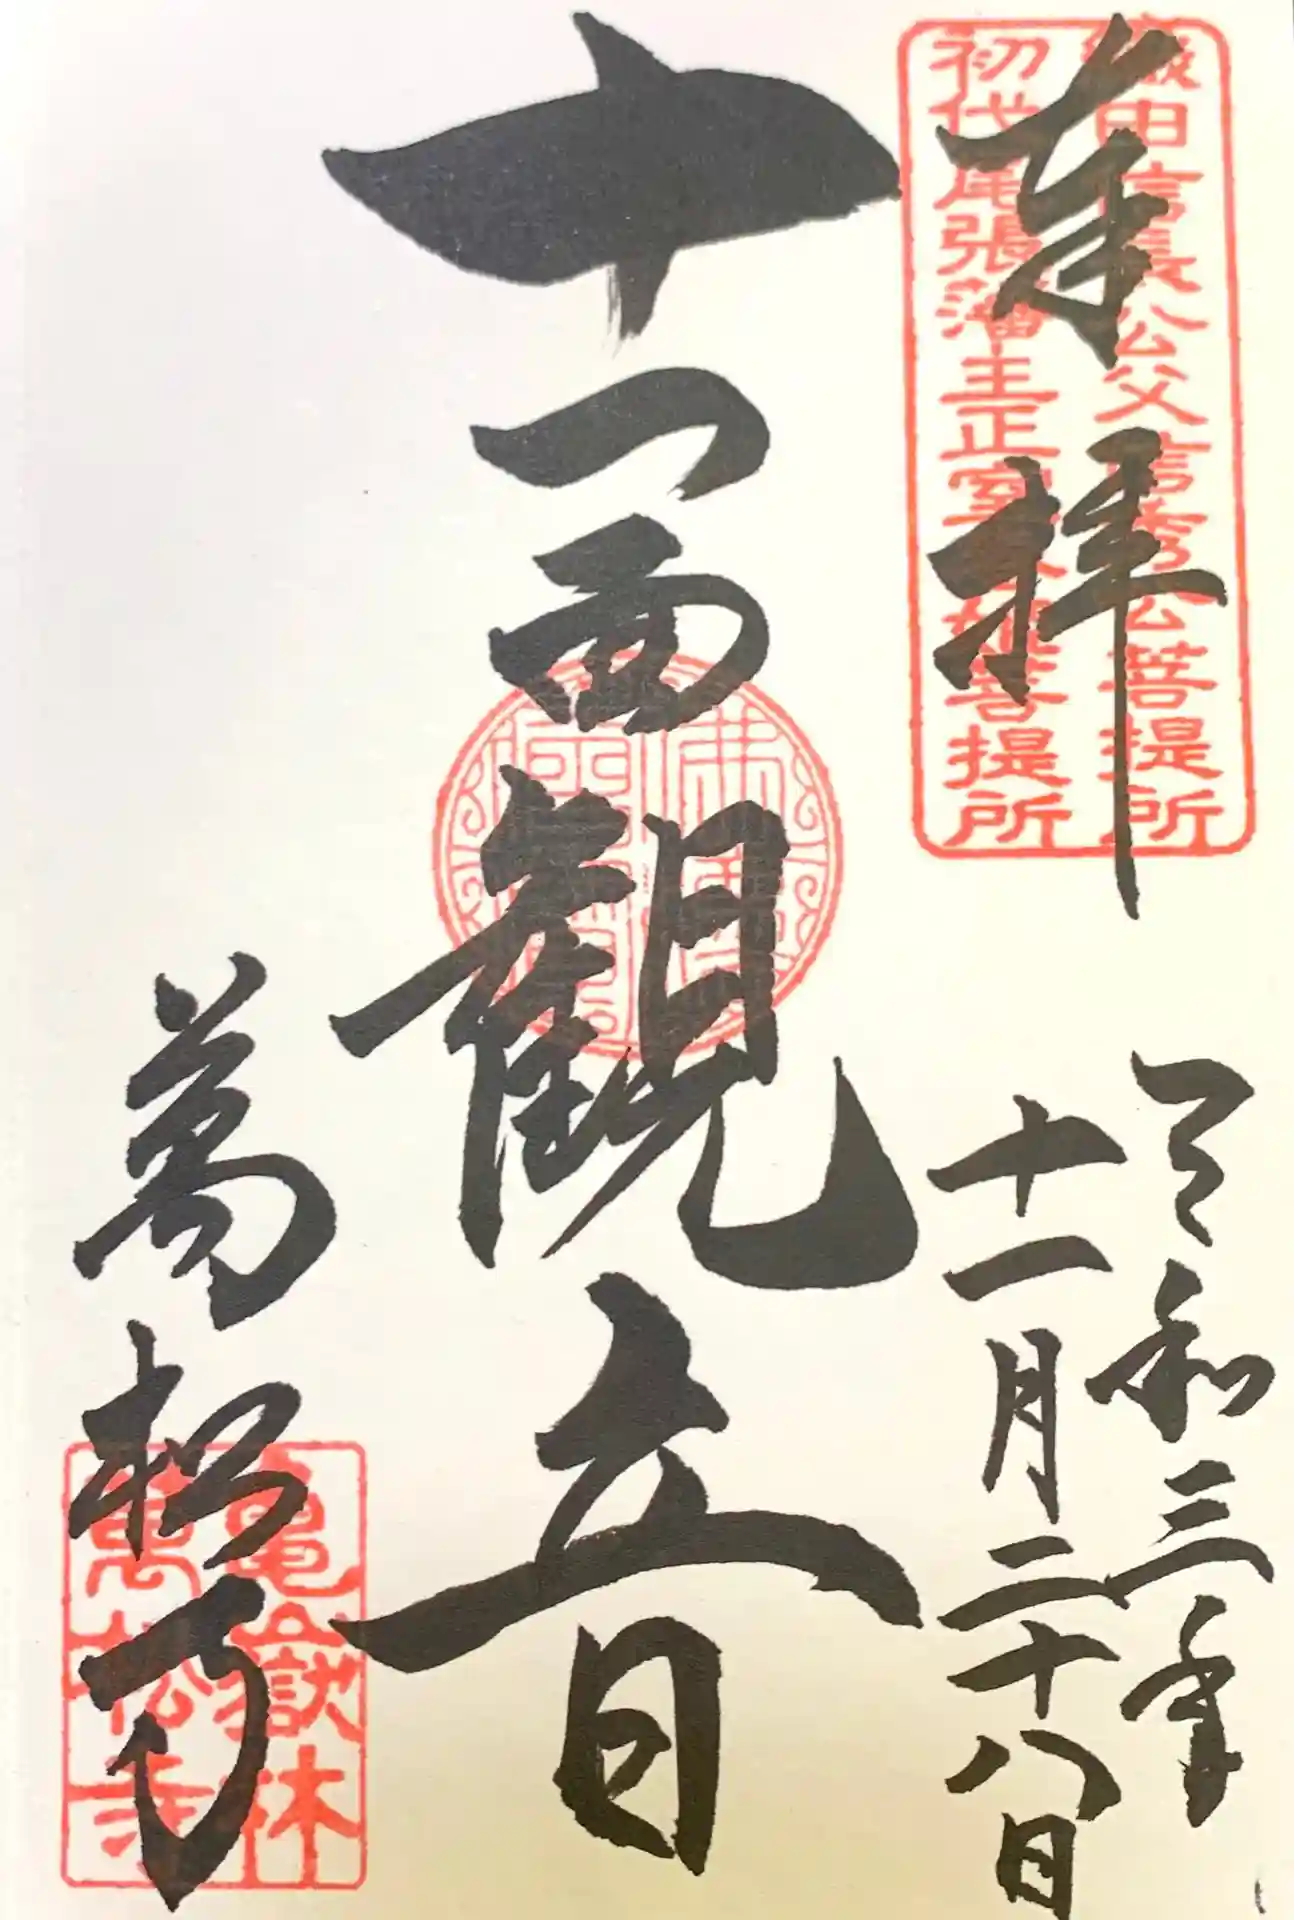 奉拝
織田信長公父信秀公菩提所
初代尾張藩主正室春姫菩提所
令和三年
十一月二十八日
十一面観音
萬松寺
亀嶽林
萬松寺